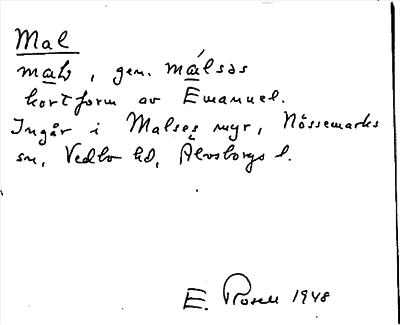 Mal
mal, gen. málsas
kortform av Emanuel.
Ingår i Malses myr, Nössemarks
sn, Vedbo hd, Älvsborgs l.
E. Rosell 1948